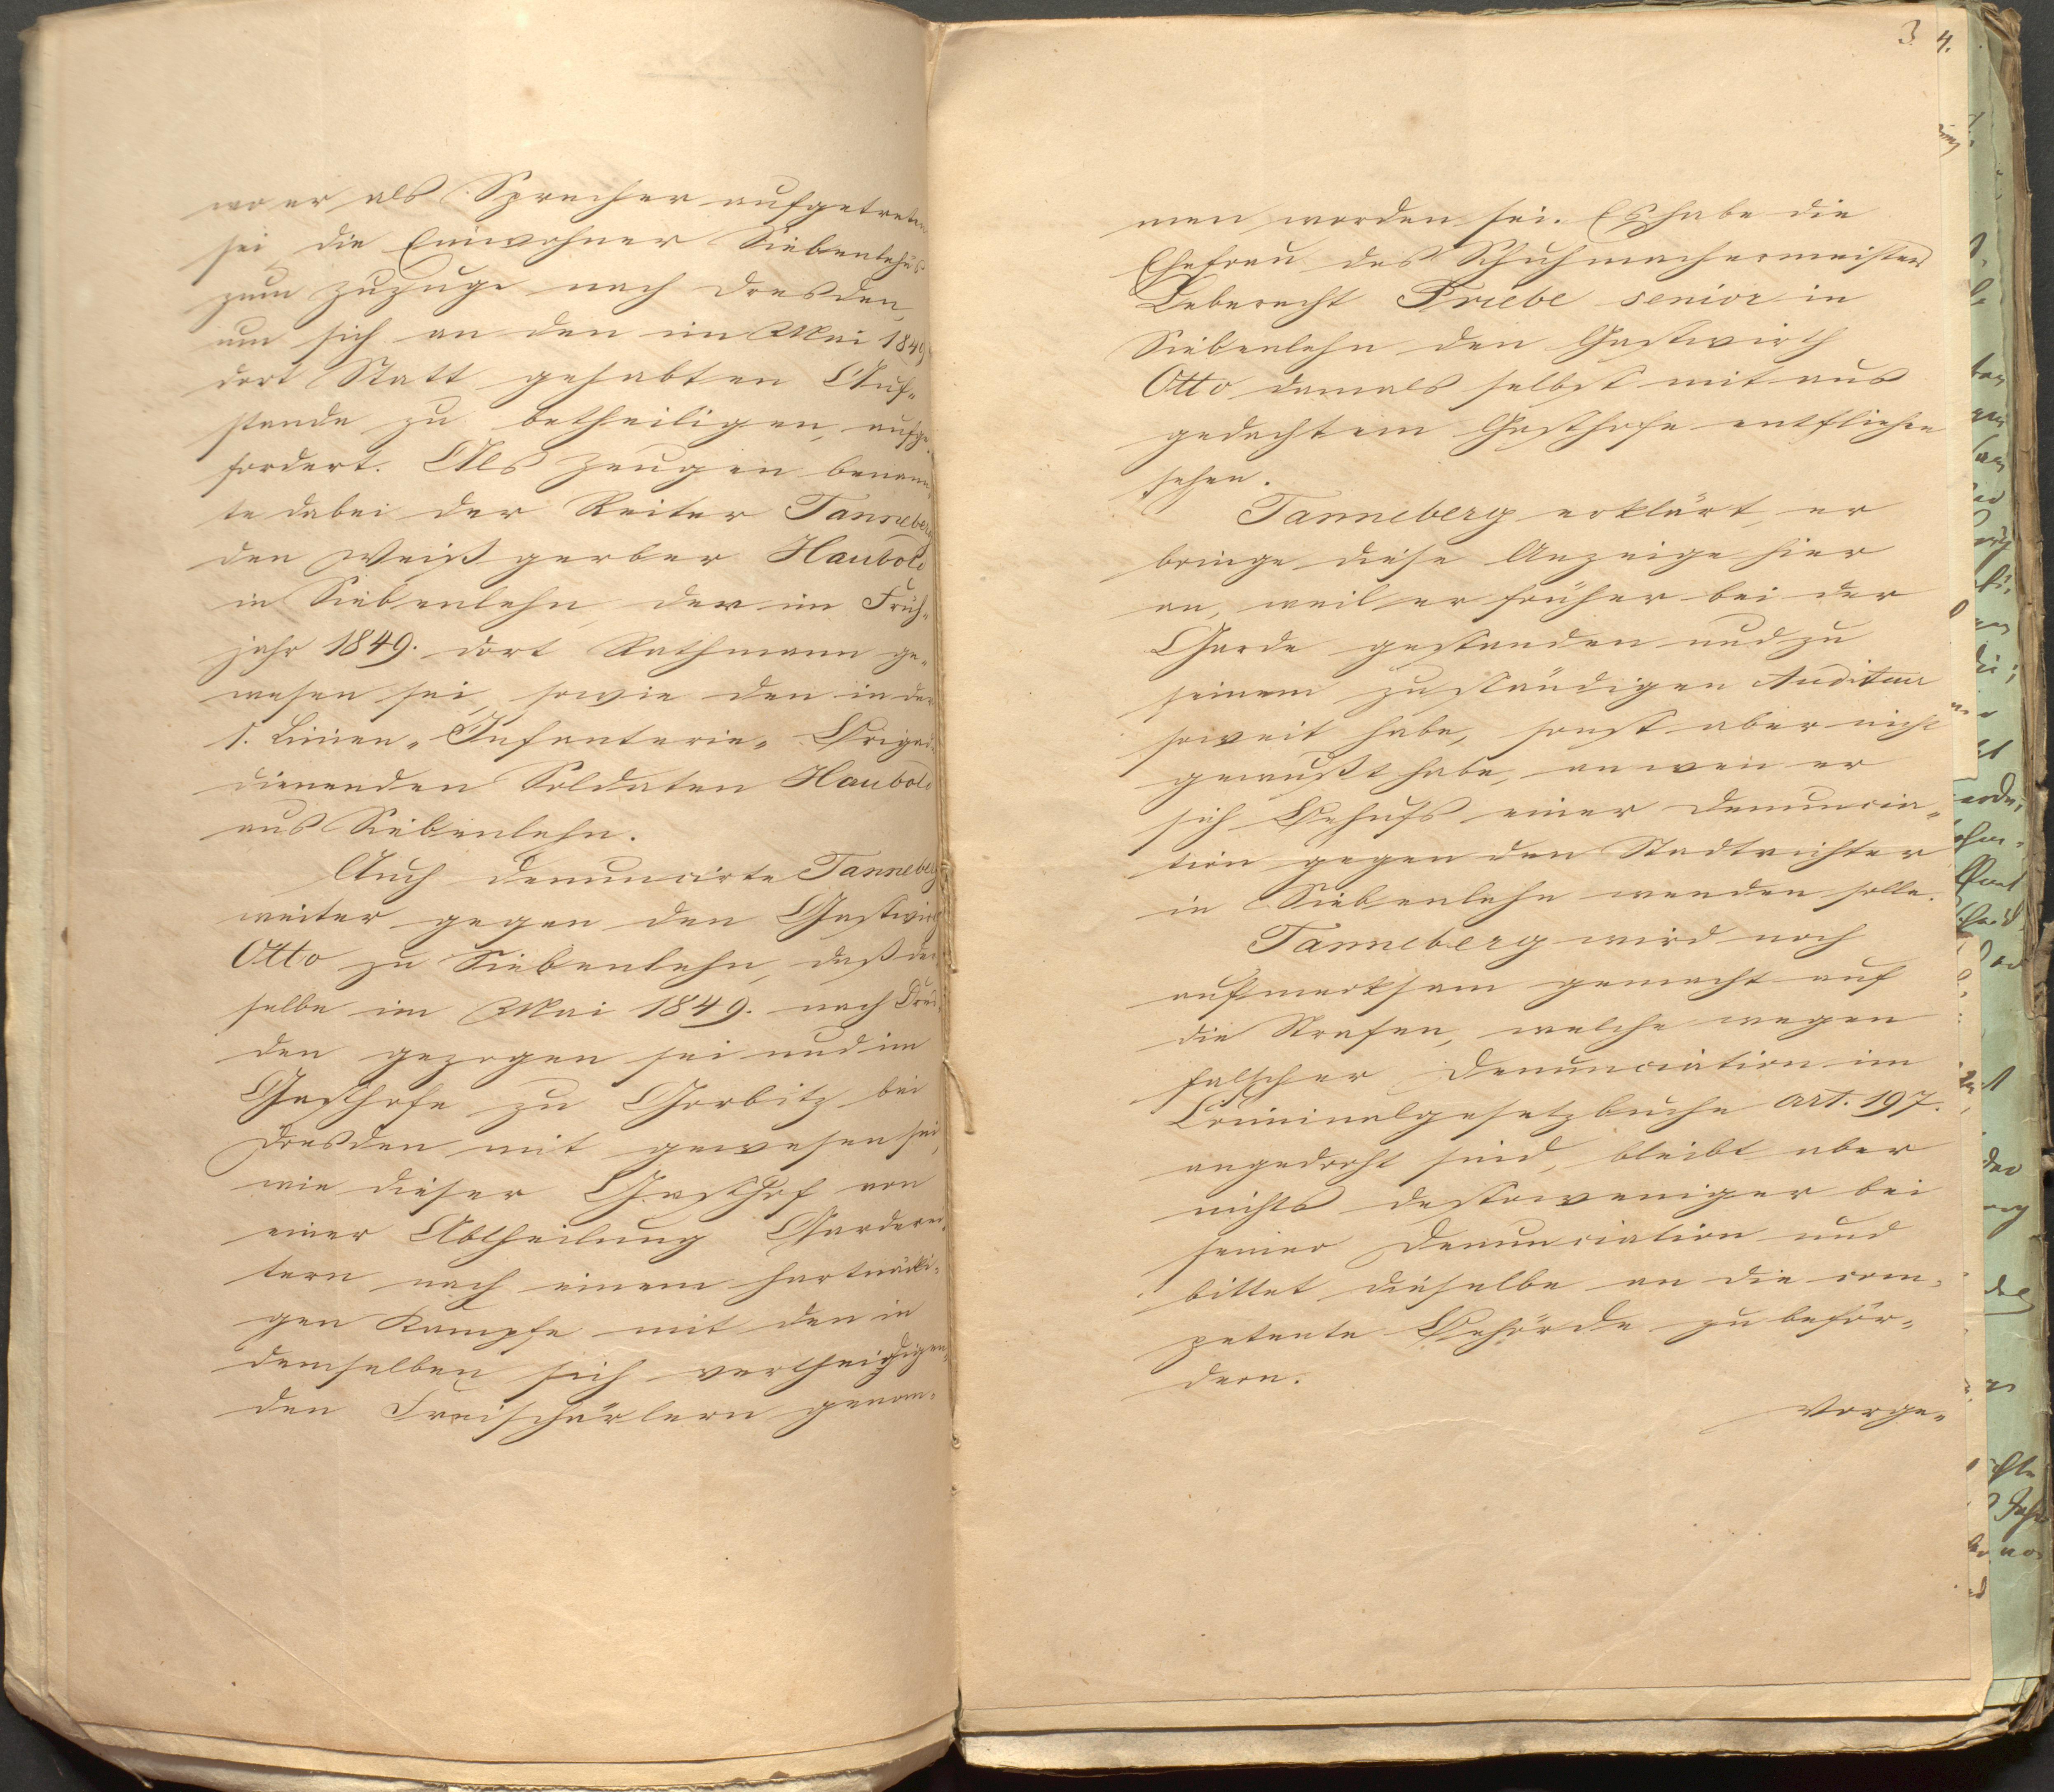 wo er als Sprecher aufgetreten
sei, die Einwohner Siebenlehns
zum Zuzuge nach Dresden,
um sich an den im Mai 1849
dort Statt gehabten Auf-
stande zu betheiligen, aufge-
fordert. Als Zeugen benann-
te dabei der Reiter Tanneberg
den Weißgerber Haubold
in Siebenlehn, der im Früh-
jahr 1849. dort Rathmann ge-
wesen sei, sowie den in der
1. Linien-Infanterie-Brigade
dienenden Soldaten Haubold
aus Siebenlehn.
Auch denuncirte Tanneberg
weiter gegen den Gastwirth
Otto zu Siebenlehn, daß der-
selbe im Mai 1849. nach Dres-
den gezogen sei und im
Gasthofe zu Gorbitz bei
Dresden mit gewesen sei,
wie dieser Gasthof von
einer Abtheilung Gardereí-
tern nach einem hartnäcki-
gen Kampfe mit den in
demselben sich vertheidigen-
den Freischärlern genom-
3. 4.
men worden sei. Es habe die
Ehefrau des Schuhmachermeisters
Leberecht Priebe senior in
Siebenlehn den Gastwirth
Otto damals selbst mit aus
gedachtem Gasthofe entfliehen
sehen.
Tanneberg erklärt, er
bringe diese Anzeige hier
an, weil er früher bei der
Garde gestanden und zu
seinem zuständigen Auditeur
soweit habe, sonst aber nicht
gewußt habe, an wen er
sich Behufs einer Denuncia-
tion gegen den Stadtrichter
in Siebenlehn wenden solle.
Tanneberg wird noch
aufmerksam gemacht auf
die Strafen, welche wegen
falscher Denunciation im
Criminalgesetzbuche Art. 197.
angedroht sind, bleibt aber
nichts destoweniger bei
seiner Denunciation und
bittet dieselbe an die com-
petente Behörde zu beför-
dern.
Vorge-